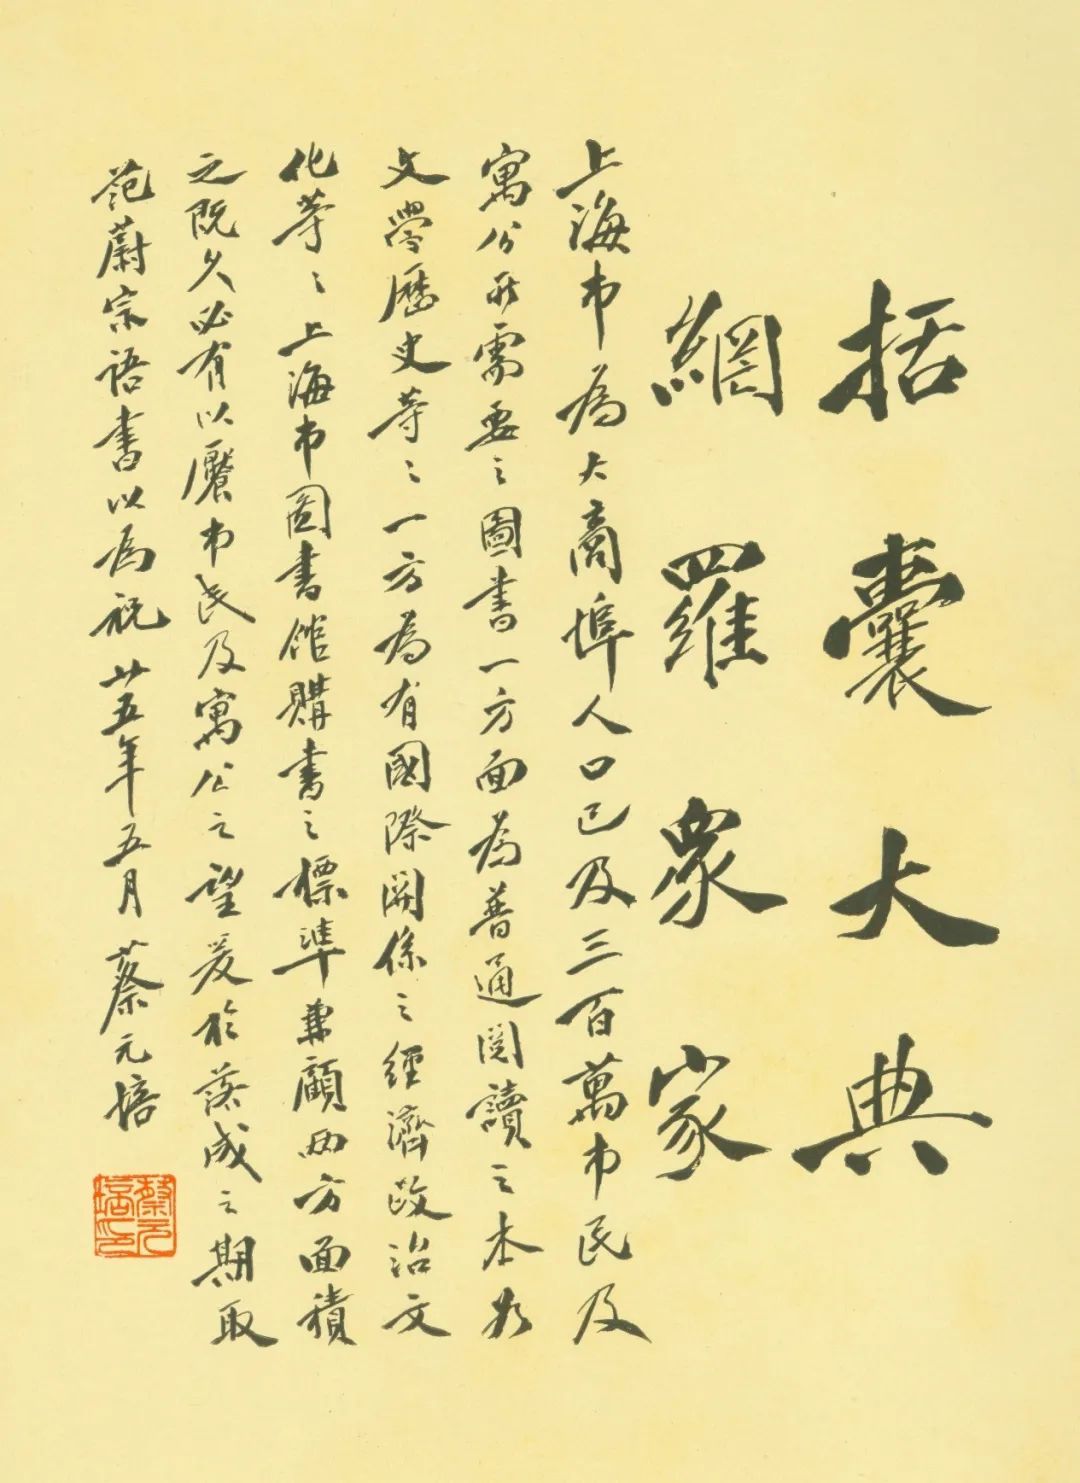 括囊大典
網羅衆家
上海市為大商埠人口已及三百萬市民及
寓公所需要之圖書一方面為普通閱讀之本如
文學歷史等等一方為有國際關係之經濟政治文
化等等上海市圖書館購書之標準兼顧兩方面積
之既久必有以饜市民及寓公之望爰於落成之期取
范蔚宗語書以為祝廿五年五月蔡元培
蔡元培印